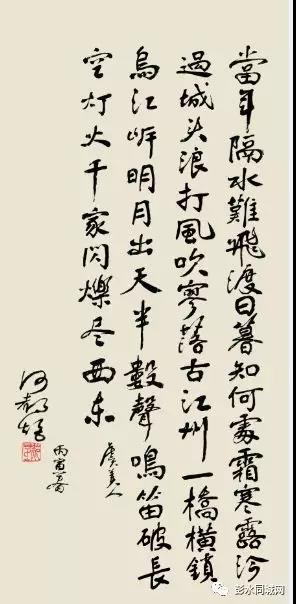 當年隔水難飛渡日暮知何處霜寒露冷
過城头浪打風吹寥落古江州一橋橫鎖
烏江岸明月出天半數聲鳴笛破長
空灯火千家闪爍尽西东
虞美人
丙寅
彭水同城网